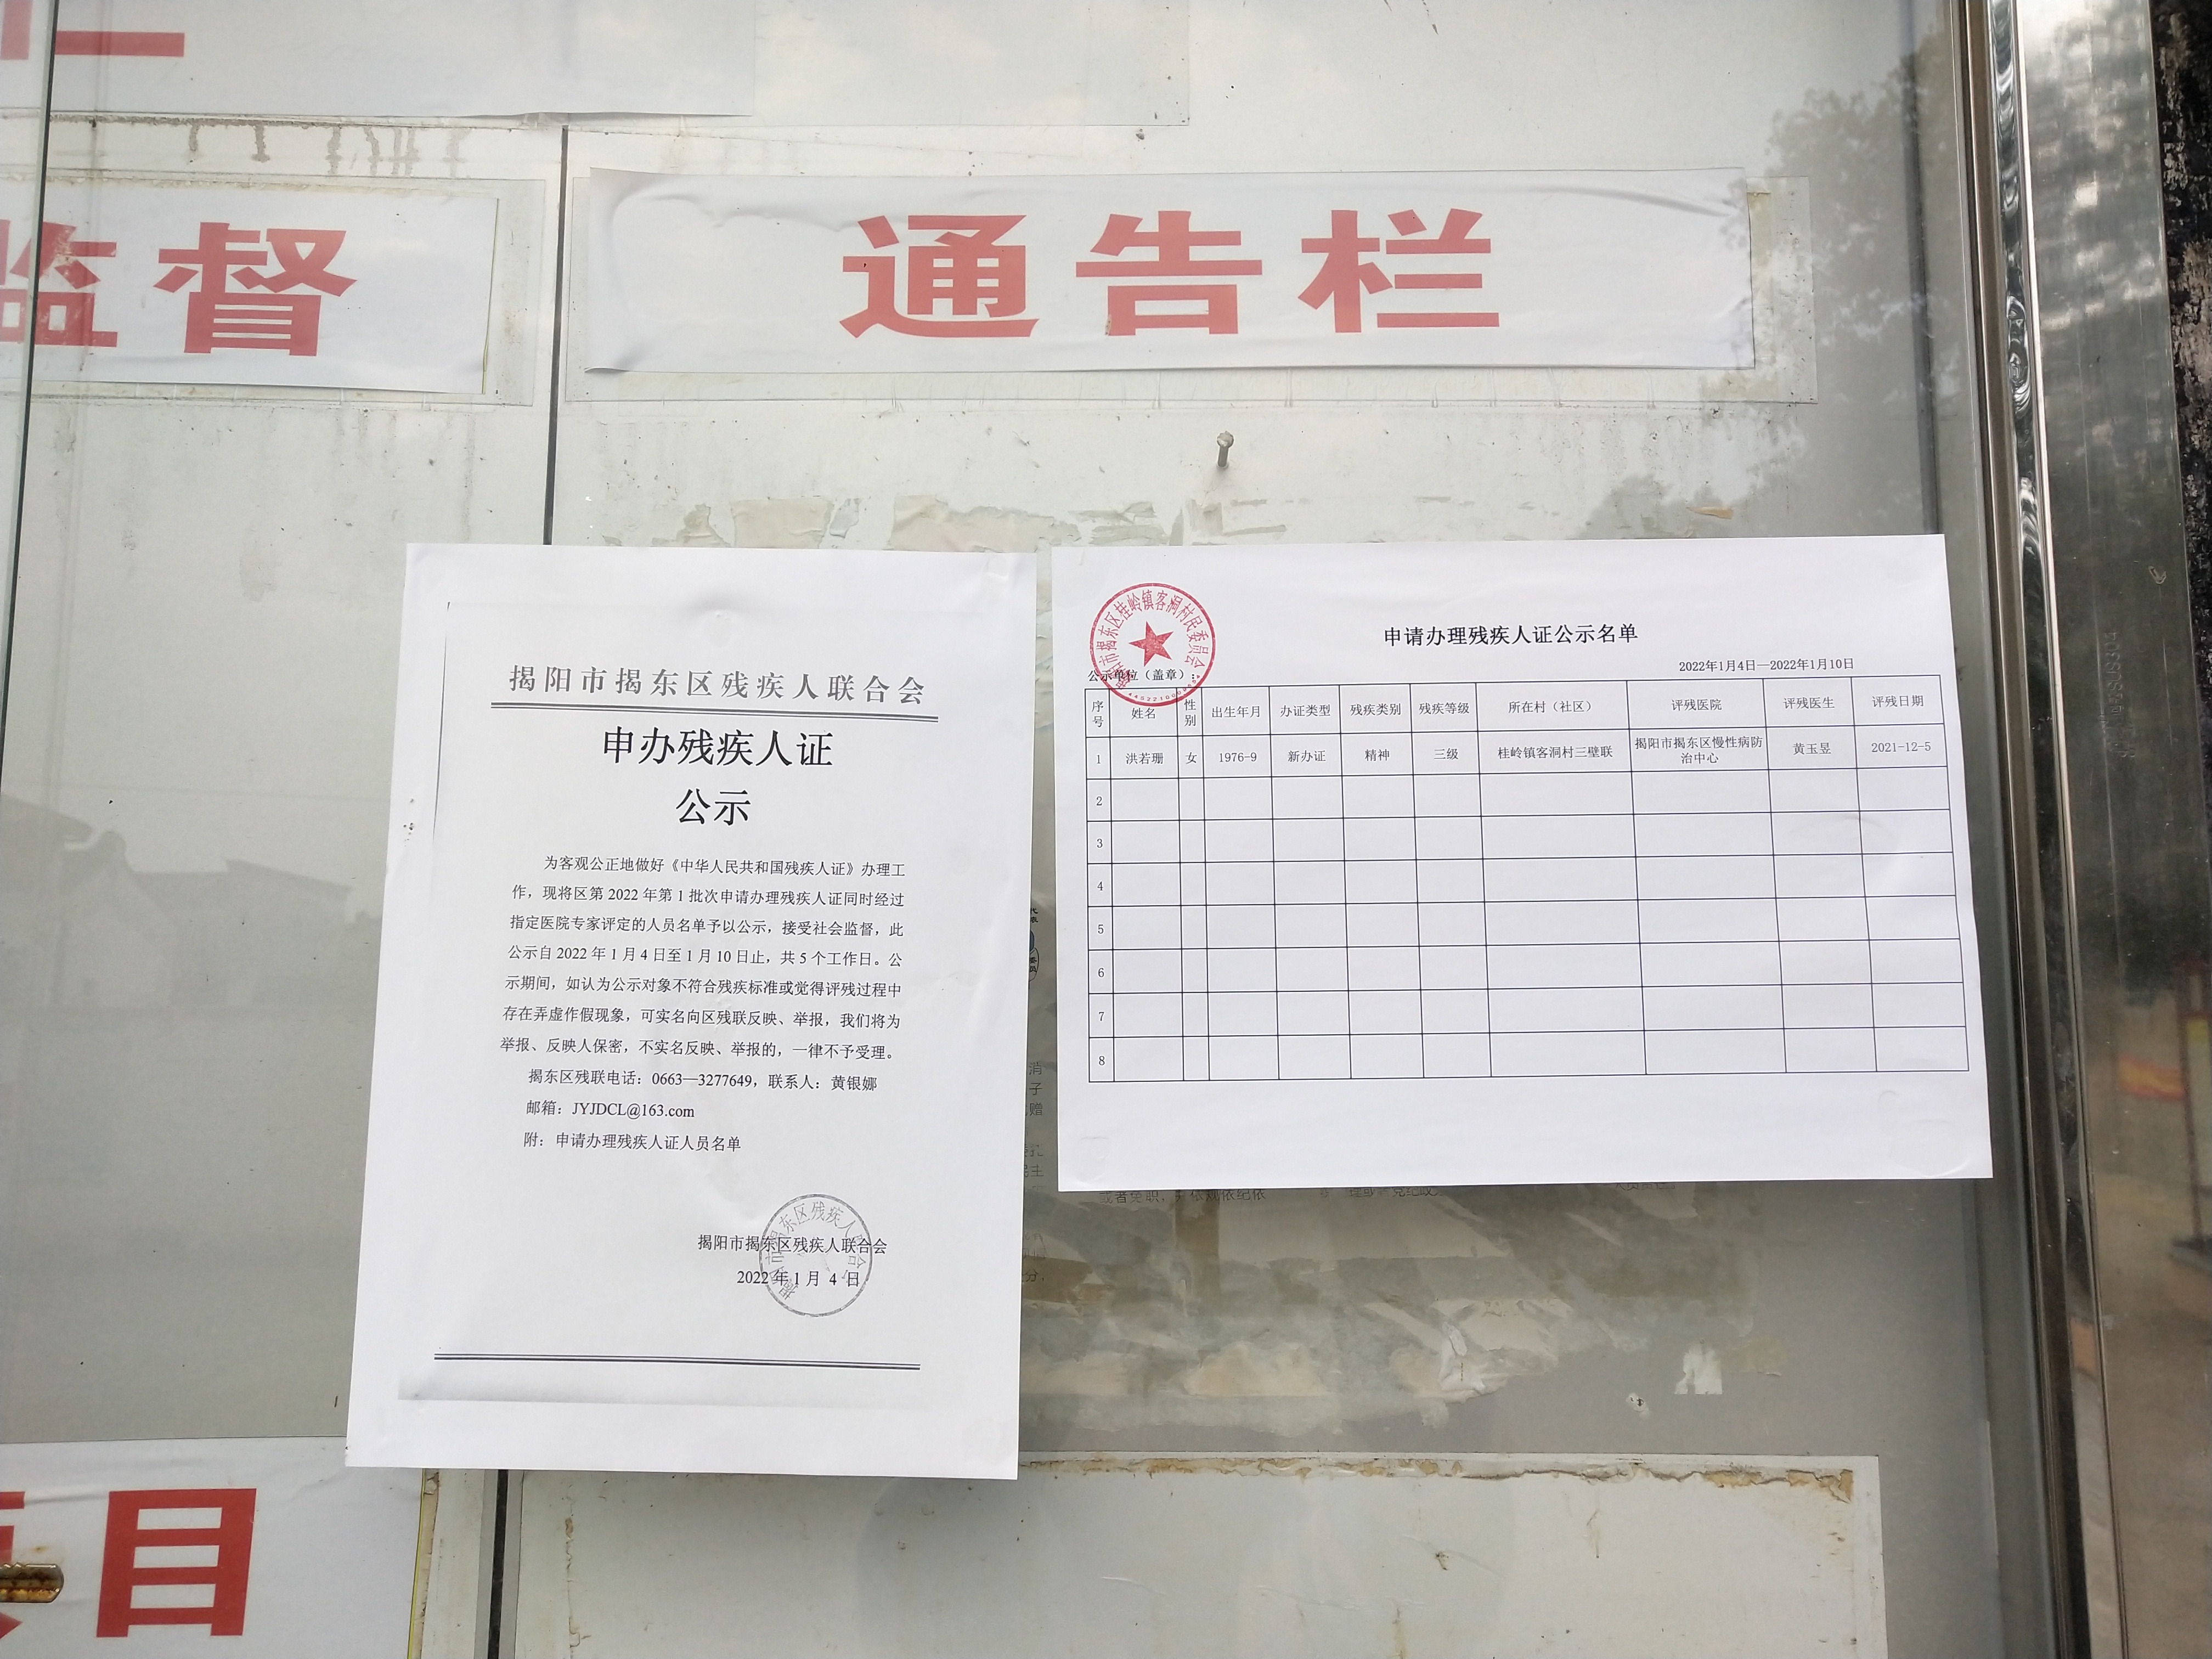 监督
通告栏
揭阳市揭东区残疾人联合会
申办残疾人证
公示
为客观公正地做好《中华人民共和国残疾人证》办理工
作，现将区第 2022 年第 1 批次申请办理残疾人证同时经过
指定医院专家评定的人员名单予以公示，接受社会监督，此
公示自 2022 年 1 月 4 日至 1 月 10 日止，共 5 个工作日。公
示期间，如认为公示对象不符合残疾标准或觉得评残过程中
存在弄虚作假现象，可实名向区残联反映、举报，我们将为
举报、反映人保密，不实名反映、举报的，一律不予受理。
揭东区残联电话：0663—3277649，联系人：黄银娜
邮箱：JYJDCL@163.com
附：申请办理残疾人证人员名单
揭阳市揭东区残疾人联合会
2022 年 1 月 4 日
揭阳市揭东区残疾人联合会
市揭东区桂岭镇客洞村民委员会
申请办理残疾人证公示名单
公示单位（盖章）：
2022年1月4日—2022年1月10日
序号 姓名 性别 出生年月 办证类型 残疾类别 残疾等级 所在村（社区） 评残医院 评残医生 评残日期
1 洪若珊 女 1976-9 新办证 精神 三级 桂岭镇客洞村三壁联 揭阳市揭东区慢性病防治中心 黄玉昱 2021-12-5
2
3
4
5
6
7
8
或者免职，
目